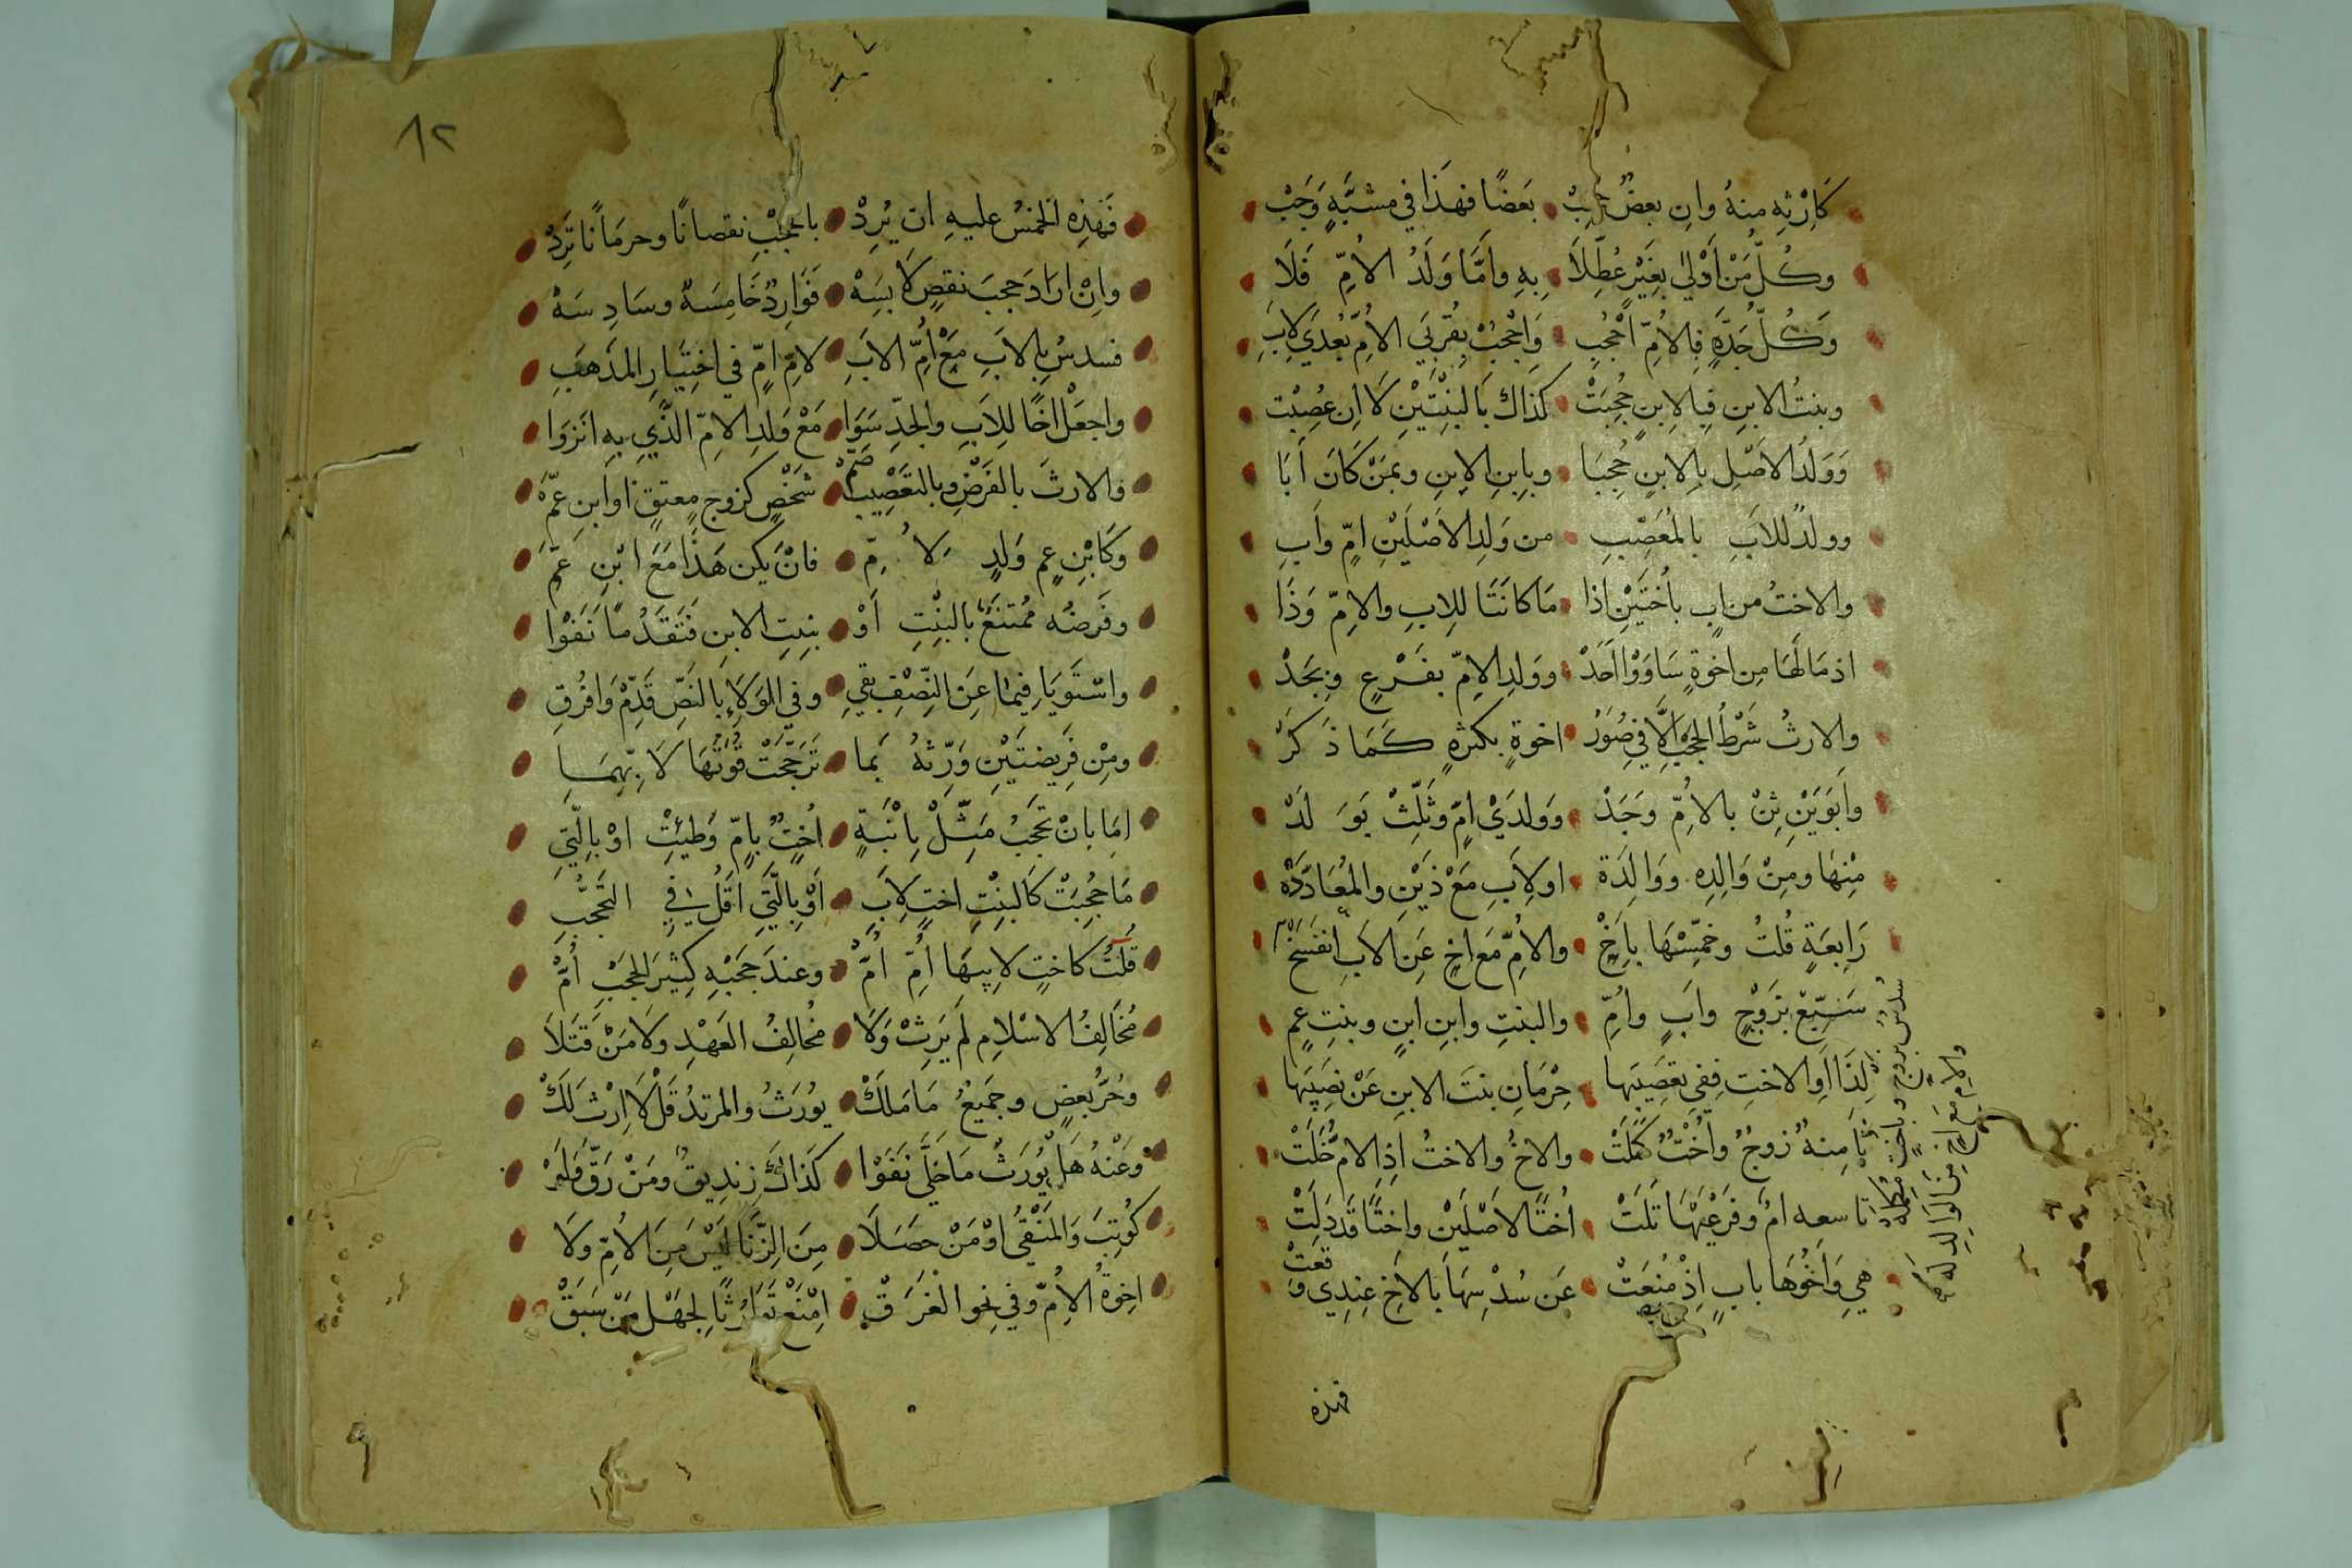 كَاِرْثِهِ مِنهُ وانِ بعضٌ حُجِبْ بَعَضًا فهَذَا في مشبَّهٍ وَجَبْ
وكُلّ مَنْ اَوْلىٰ بِغَيْرٍ عُطِّلَاَ بِهِ واَمَّا وَلَدُ الاُمِّ فَلَا
وَكُلّ جَدَّةٍ فِالاُمِّ اَحْجُبِ وَاِحْجُبْ بِقُربَي الاُمِّ بُعْدَي لِاَبِ
وبنتُ الابنِ فِبالاِبنِ حُجِبَتْ كذاك بَالبنْتَيْنِ لَا اِن عُصِبْت
وَوَلَدُ الاَصْلِ بِالاِبنِ حُجِبَا وبابِنِ الاِبنِ وبمَنْ كَانَ اَبَا
وولدٌ للاَبِ بالمُعَصِّبِ من وَلِدِ الاَصْلَيْنِ اُمٍّ واَبِ
والاختُ من ابٍ باُختَيْنِ اذا مَا كانَتَا للِابِ والاِمِّ وَذَا
اذ مَا لَهَا مِن اخوةٍ سَاوَوْا اَحَدْ وولدِ الاِمِّ بفَرْعٍ وبِجَدْ
والارثُ شَرْطُ الحجْبِ اِلَّا فِي صُوَرْ اخوةٍ بكثرهٍ كَمَا ذَكَرْ
واَبَوَيْنِ ثِنْ بالاُمِّ وَجَدْ وَوَلدَيْ اُمٍّ وثَلِّثْ بوَلَدْ
مْنِهَا ومِنْ وَالِدِه وَوَالِدَة اولاَبِ مَعْ ذَيْنِ والمُعَادَّدَهْ
رَابِعَةٍ قُلتُ وخمِّسْهَا بِاَخْ والاُمِّ مَعَ اخٍ عَنِ الاَبِ انفَسَخْ
سَبِّعْ بِزَوْجٍ وابٍ واُمِّ والبنتِ وابنِ ابنٍ وبنتِ عمٍ
لِذَا اَوِ الاختِ ففي تعصِيَبها حِرْمَانِ بنتَ الابنِ عَنْ نصِيَبِها
ثَامِنهٌ زوجٌ واُخْتٌ كَمُلَتْ والاخُ والاختُ اذِ الامُ خُلَتْ
تاسعه امٌ وفَرْعَيْهَا تَلَتْ اُختًا لاَصْلَيْنِ واختًا قَد دَلِتْ
هِي وَاَخُوهَا بابٍ اِذْ مُنِعَتْ عَن سُدْسِهَا بالاخِ عِندِي وَقعَتْ
سُدسْ بزوج وباختٍ مكمله
والامِ مع اخٍ من الوالدِ له
فهذه
٨٢
فَهَذِهِ الخَمْسُ عليهِ ان يُرِدْ بالحَجْبِ نقصانًا وحرمَانًا تَرِدْ
واِنْ ارَادَ حَجبَ نقصٍ لَابَسَهْ فَوَارِدٌ خَامِسَةٌ وسَادِسَهْ
فسدسُ بالاَبِ مَعْ اُمِّ الابَ لامِّ امٍّ في اختِيَارِ المذَهَبِ
واجعَلْ اخًا للِاَبِ والجدِّ سَوَا مَعْ وَلدِ الامِّ الذَّي بهِ انَزوَا
والارثَ بالفَرْضِ وبالتَعَّصِيْبِ ضُمّْ شخْصٍ كزوج معتِقٍ او ابنِ عمّ
وكَابْنِ عِمٍ وَلدٍ لاُمِّ فانْ يكن هَذَا مَعَ ابْنِ عَمِّ
وفَرضُه مُمْتنَعٌ بالبنْتِ اَوْ بنتِ الابن فَتَقَدُمًا نَفَوْا
واسْتَوَيَا فِيمَا عَنَ النِّصْفِ بقيِ وفي الوَلَاءِ بالنَصِّ قَدِّمْ وَافرُقِ
ومِنْ فَريضتَيْنِ وَرِّثهُ بمَا تَرجَّحَتْ قوَّتُهَا لَا بِهِمَا
امَّا بانْ تَحجُبْ مَثِّلْ بِابْنَةٍ اُختٌ باُمٍّ وُطِيَتْ اوْ بالَّتيِ
مَا حُجِبَتْ كَالبنْتِ اختٍ لاِبَ اَوْ بِالَّتي اقَلُ فِي التَحَجُّبِ
قلتُ كاختٍ لابِيهَا اُمِّ اُمّْ وعندَ حَجْبِهِ كثيرَ الحجْبَ اُمّْ
مُخَالِفُ الاسْلامِ لَم يَرِثْ وَلَا مُخالِفُ العَهْدِ ولَا مَنْ قَتَلَا
وحُرُّ بعضٍ وجَمِيعُ مَا مَلكْ يوُرَثُ والمرتدُ قُلْ لَا اِرْثَ لَكْ
وَعَنْهُ هَلْ يُورَثُ مَا خَلَّى نَفَوْا كَذَاكَ زِندِيقٌ ومَنْ رَقَّ ولَمْ
كُوتِبَ وَالمَنْفِيُ اوْ مَنْ حصَلَا مِنَ الِزّنَا لَيْسَ مَنَ الاُمِّ ولَا
اخِوةُ الاُمِّ وفي نحو الغرَقْ اِمْنَعْ تَوَارُثًا لجَهْلِ مَنْ سَبَقْ